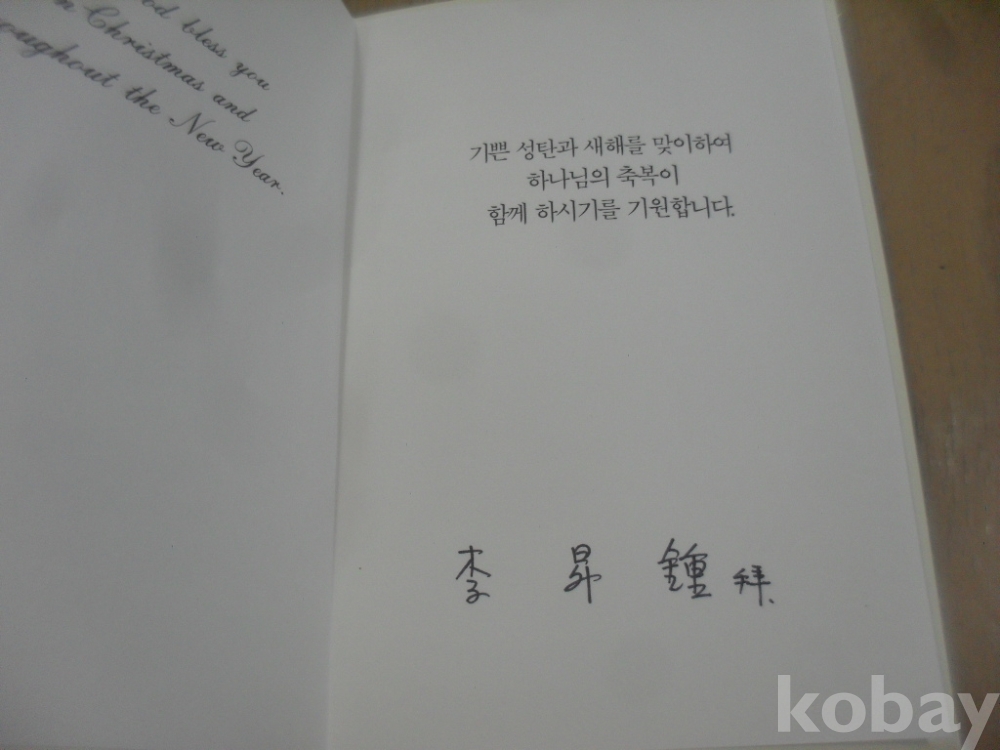 od bless you
n Christmas and
roughout the New Year.
기쁜 성탄과 새해를 맞이하여
하나님의 축복이
함께 하시기를 기원합니다.
李 昇 鍾 拜.
kobay